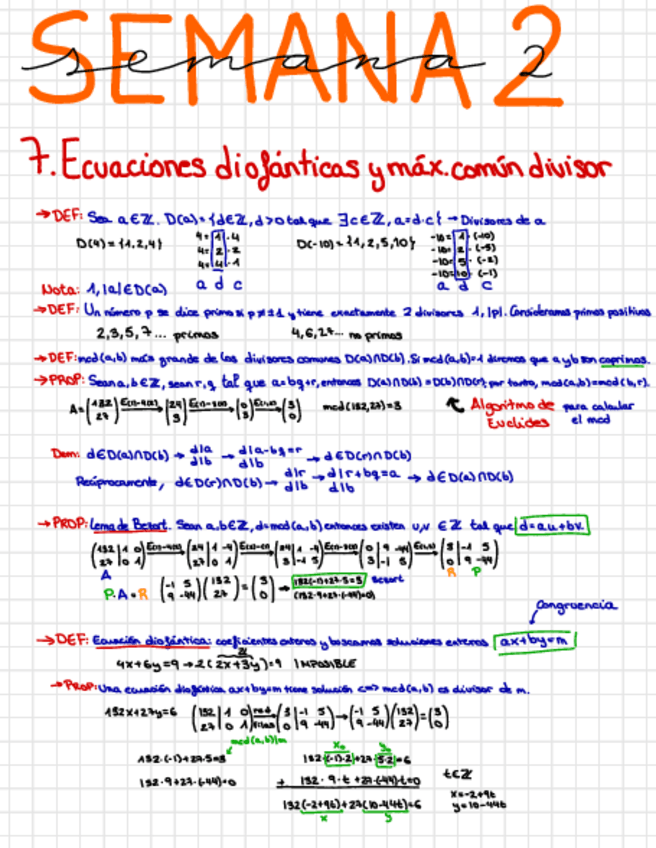 SEMANA 2
semana 2
7. Ecuaciones diofánticas y máx. común divisor
→ DEF: Sea a∈ℤ. D(a)={d∈ℤ, d>0 tal que ∃c∈ℤ, a=d·c} → Divisores de a
D(4)={1,2,4} 4=1·4 D(-10)={1,2,5,10} -10=1·(-10)
4=2·2 -10=2·(-5)
4=4·1 -10=5·(-2)
-10=10·(-1)
a d c a d c
Nota: 1,|a|∈D(a)
→ DEF: Un número p se dice primo si p≠±1 y tiene exactamente 2 divisores 1, |p|. Consideramos primos positivos
2,3,5,7... primos 4,6,27... no primos
→ DEF: mcd(a,b) más grande de los divisores comunes D(a)∩D(b). Si mcd(a,b)=1 diremos que a y b son coprimos.
→ PROP: Sean a,b∈ℤ, sean r,q tal que a=bq+r, entonces D(a)∩D(b)=D(b)∩D(r); por tanto, mcd(a,b)=mcd(b,r).
mcd(132,27)=3 Algoritmo de Euclides para calcular el mcd
Dem: d∈D(a)∩D(b) → d|a d|b → d|a-bq=r d|b → d∈D(r)∩D(b)
Recíprocamente, d∈D(r)∩D(b) → d|r d|b → d|r+bq=a d|b → d∈D(a)∩D(b)
→ PROP: Lema de Bezout. Sean a,b∈ℤ, d=mcd(a,b) entonces existen u,v ∈ℤ tal que d=au+bv.
A R P
P·A=R (-1 5 / 9 -44)(132 / 27)=(3 / 0) → 132(-1)+27·5=3 Bezout
(132·9+27·(-44)=0)
congruencia
→ DEF: Ecuación diofántica: coeficientes enteros y buscamos soluciones enteras ax+by=m
ℤ
4x+6y=9 → 2(2x+3y)=9 IMPOSIBLE
→ PROP: Una ecuación diofántica ax+by=m tiene solución <=> mcd(a,b) es divisor de m.
132x+27y=6 (132 | 1 0 / 27 | 0 1) red filas (3 | -1 5 / 0 | 9 -44) → (-1 5 / 9 -44)(132 / 27)=(3 / 0)
mcd(a,b)|m x₀ y₀
132·(-1)+27·5=3 132·(-1)·2+27·5·2=6
132·9+27·(-44)=0 + 132·9·t+27·(-44)·t=0 t∈ℤ
132(-2+9t)+27(10-44t)=6 x=-2+9t
x y y=10-44t